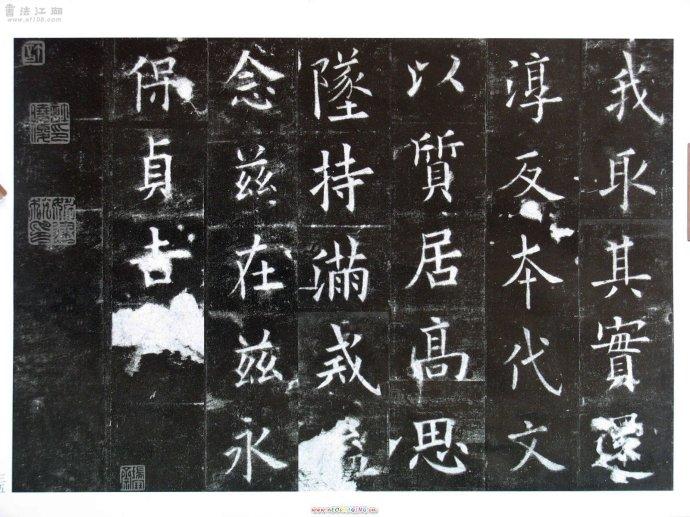 書法江湖
www.sf108.com
我取其實還
淳反本代文
以質居高思
墜持滿戒
念茲在茲永
保貞吉